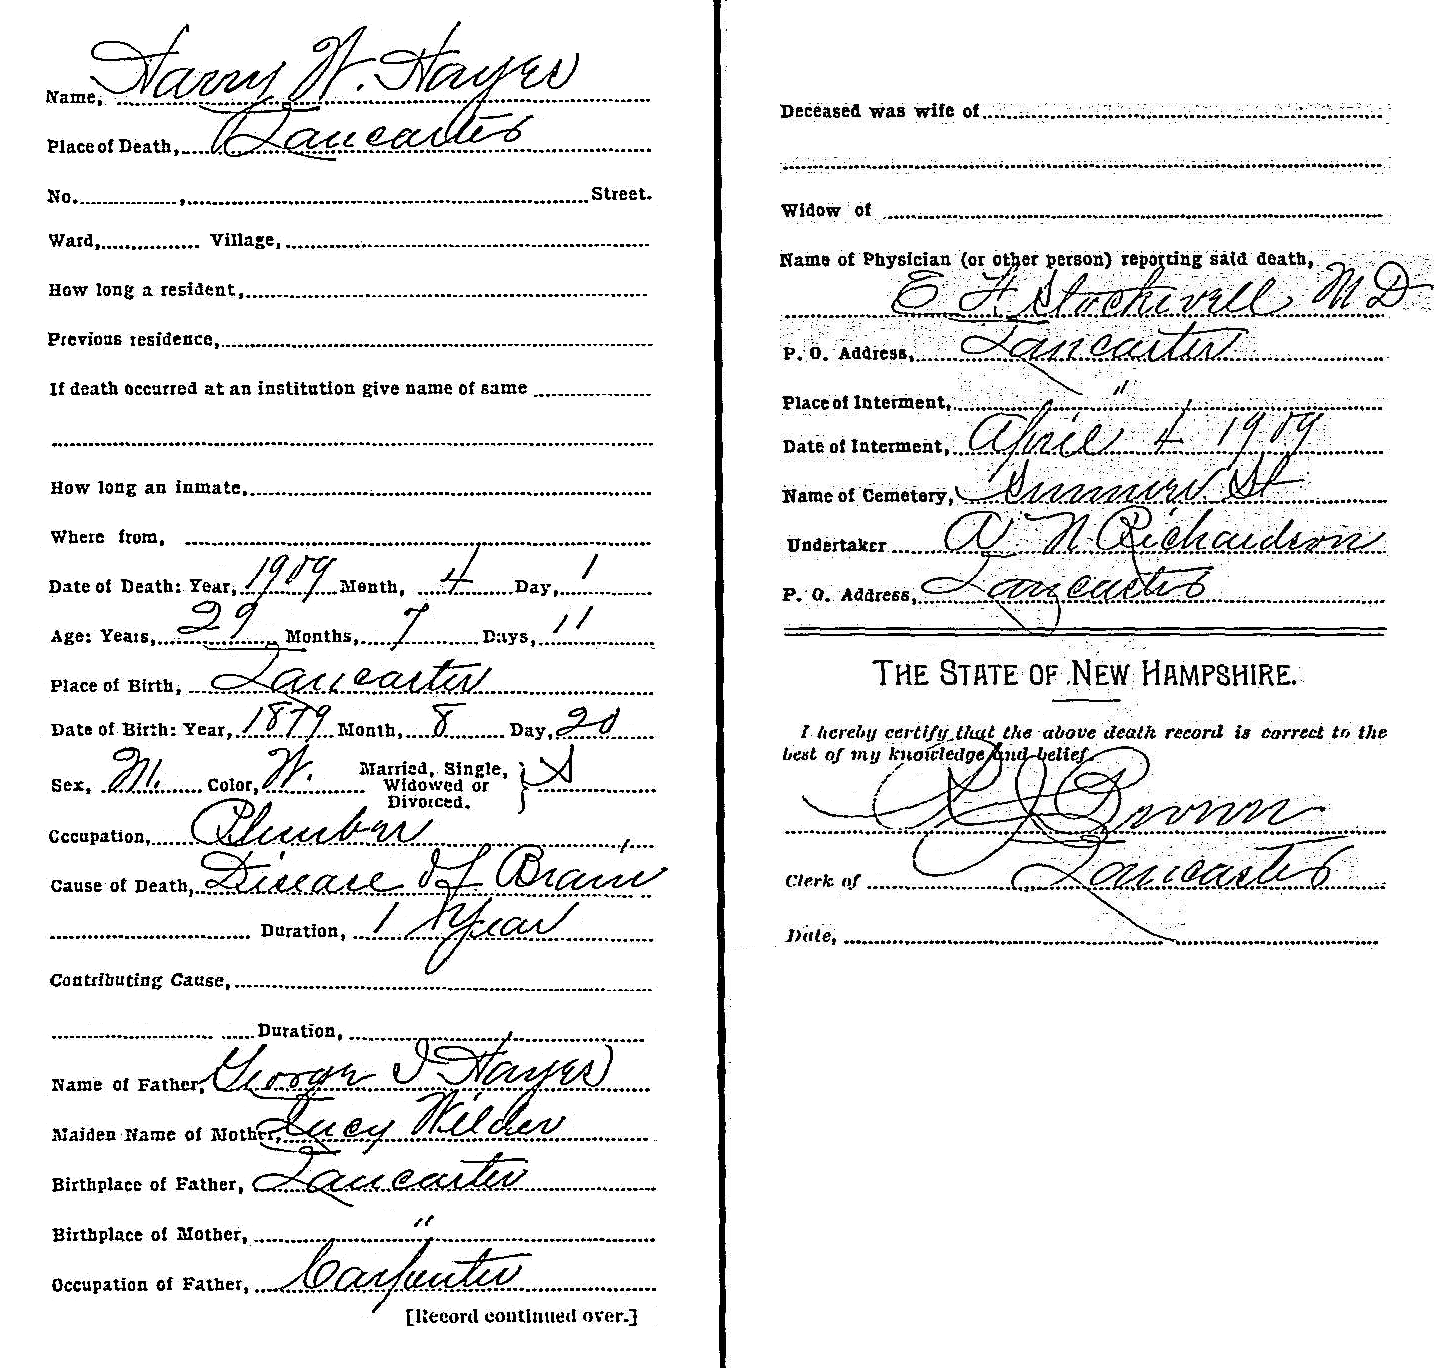 Name, Harry W. Hayes
Place of Death, Lancaster
No. , Street.
Ward, Village,
How long a resident,
Previous residence,
If death occurred at an institution give name of same
How long an inmate,
Where from,
Date of Death: Year, 1909 Month, 4 Day, 1
Age: Years, 29 Months, 7 Days, 11
Place of Birth, Lancaster
Date of Birth: Year, 1879 Month, 8 Day, 20
Sex, M. Color, W. Married, Single, Widowed or Divorced. } S
Occupation, Plumber
Cause of Death, Disease of Brain
Duration, 1 Year
Contributing Cause,
Duration,
Name of Father, George I Hayes
Maiden Name of Mother, Lucy Wilder
Birthplace of Father, Lancaster
Birthplace of Mother, "
Occupation of Father, Carpenter
[Record continued over.]
Deceased was wife of
Widow of
Name of Physician (or other person) reporting said death,
E F Stockwell M D
P. O. Address, Lancaster
Place of Interment, "
Date of Interment, April 4 1909
Name of Cemetery, Summer St
Undertaker A N Richardson
P. O. Address, Lancaster
THE STATE OF NEW HAMPSHIRE.
I hereby certify that the above death record is correct to the
best of my knowledge and belief.
Brown
Clerk of Lancaster
Date,